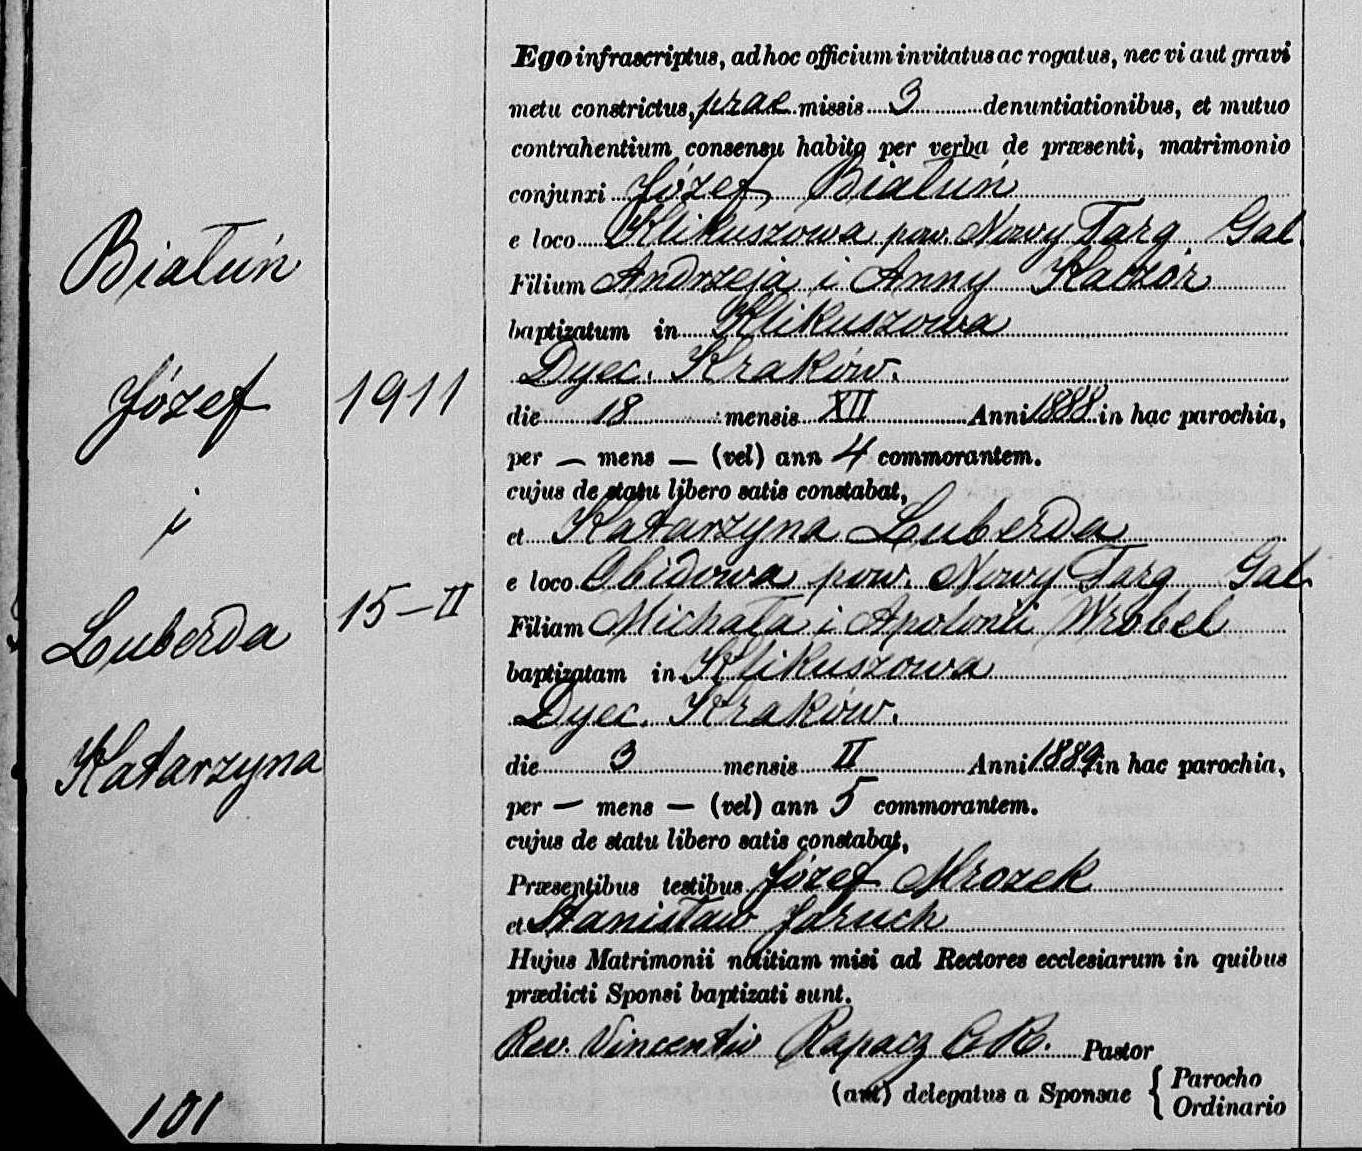 Białuń
Józef
i
Luberda
Katarzyna
101
1911
15–II
Ego infrascriptus, ad hoc officium invitatus ac rogatus, nec vi aut gravi
metu constrictus, prae missis 3 denuntiationibus, et mutuo
contrahentium consensu habito per verba de præsenti, matrimonio
conjunxi Józef Białuń
e loco Klikuszowa pow. Nowy Targ Gal.
Filium Andrzeja i Anny Kaczór
baptizatum in Klikuszowa
Dyec. Kraków.
die 18 mensis XII Anni 1888 in hac parochia,
per — mens — (vel) ann 4 commorantem.
cujus de statu libero satis constabat,
et Katarzyna Luberda
e loco Obidowa pow. Nowy Targ Gal.
Filiam Michała i Apolonii Wrobel
baptizatam in Klikuszowa
Dyec. Kraków.
die 3 mensis II Anni 1889 in hac parochia,
per — mens — (vel) ann 5 commorantem.
cujus de statu libero satis constabat,
Præsentibus testibus Józef Mrozek
et Stanisław Jaruch
Hujus Matrimonii notitiam misi ad Rectores ecclesiarum in quibus
prædicti Sponsi baptizati sunt.
Rev. Vincentiu Rapacz C.R. Pastor
(aut) delegatus a Sponsae { Parocho
Ordinario